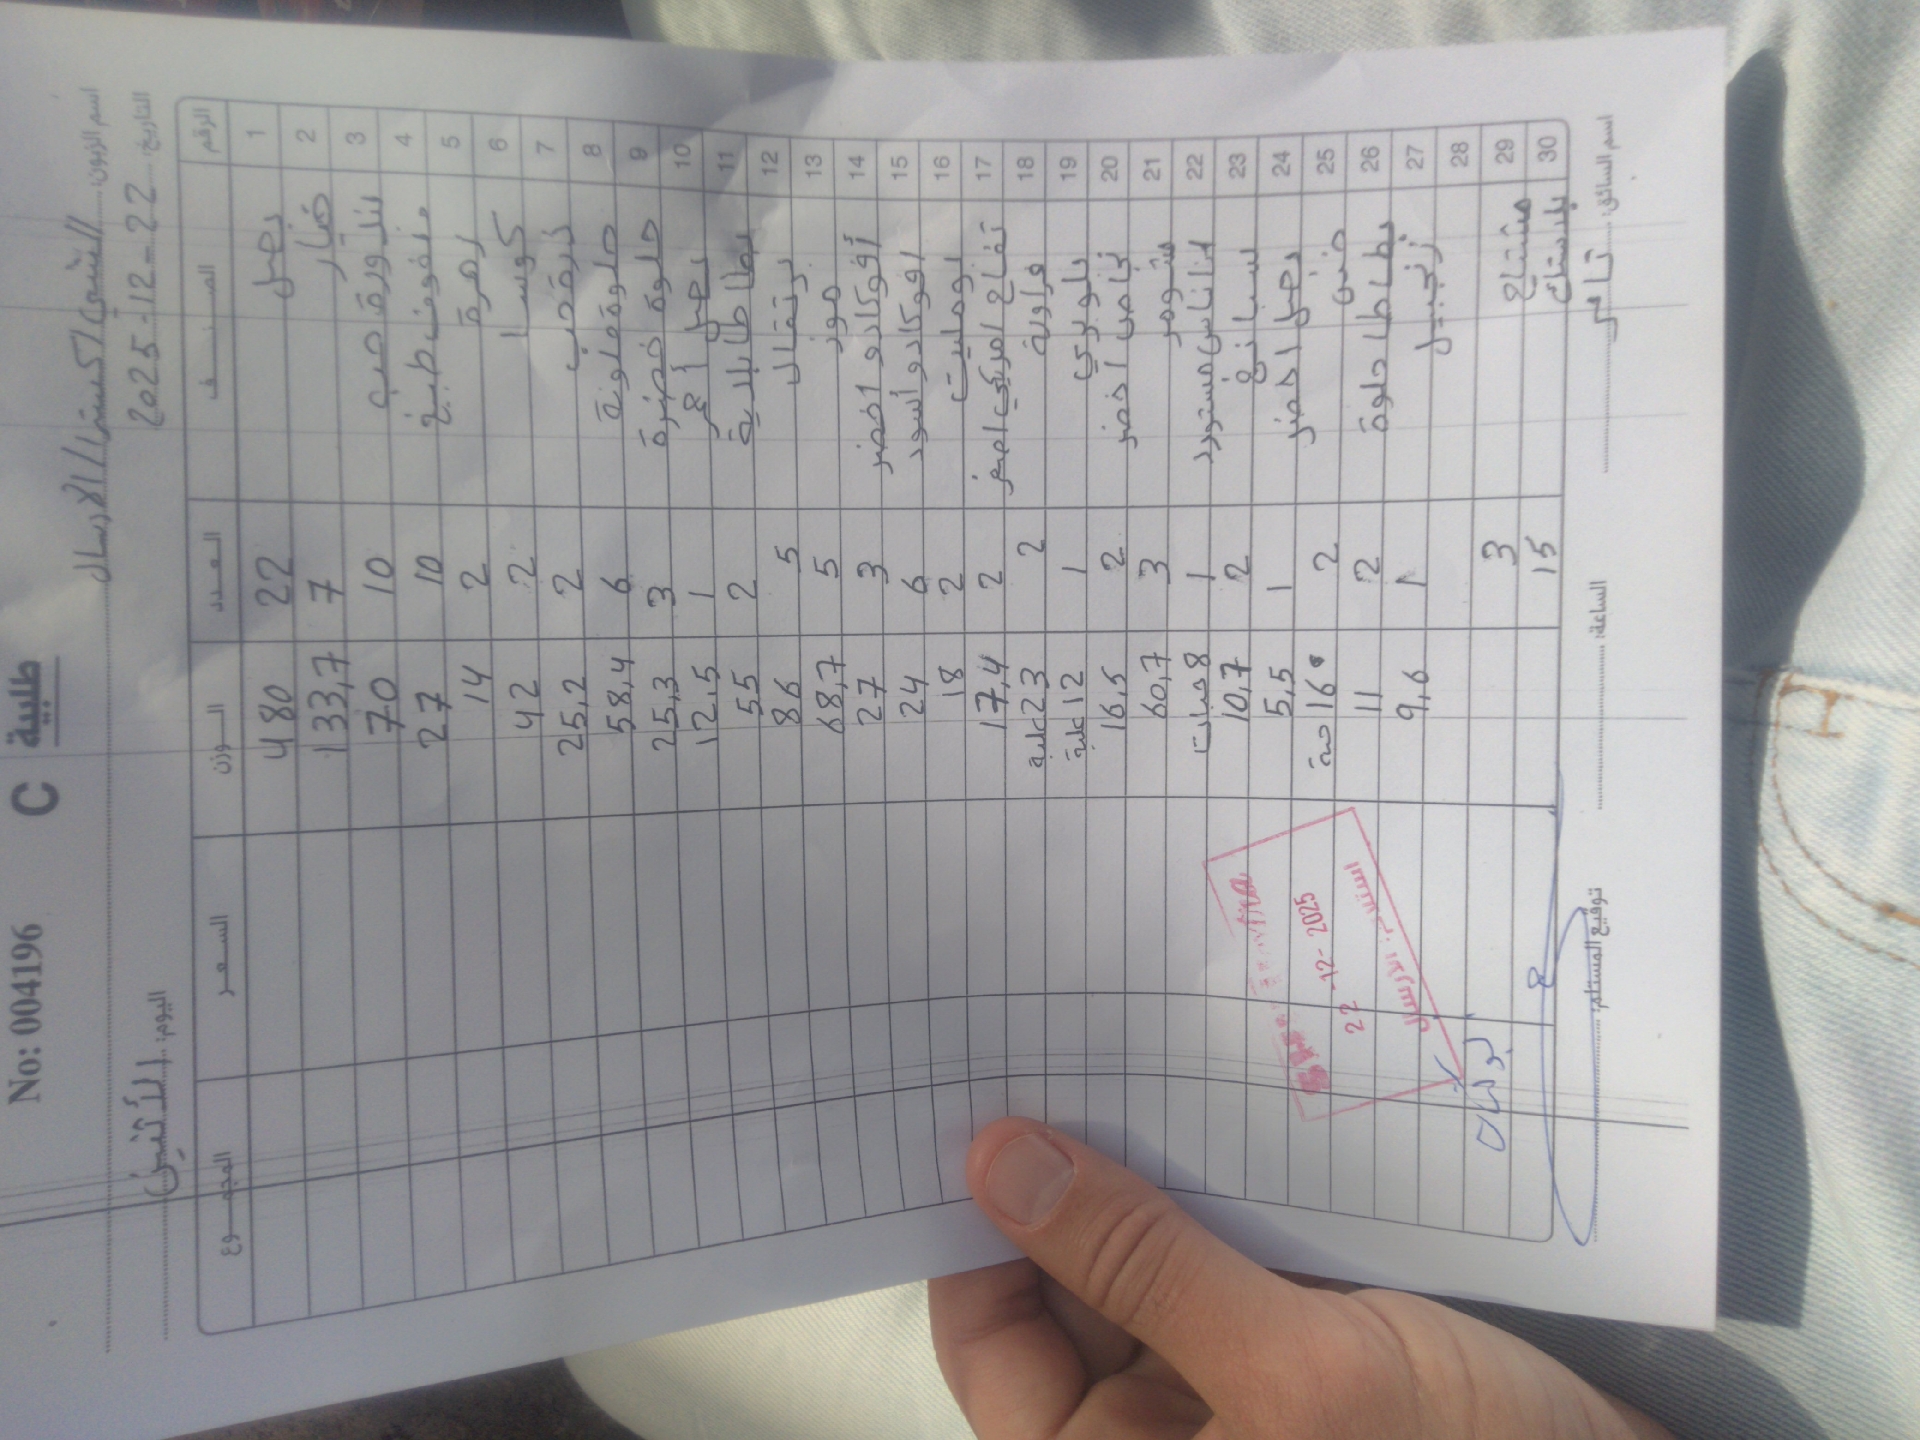 No: 004196 C طلبية
اسم الزبون: الشني اكسترا / الارسال
التاريخ: 2025-12-22 اليوم: الأثنين
الرقم الصنف العدد الوزن السعر المجموع
1 بصل 22 480
2 خيار 7 133,7
3 بندورة حب 10 70
4 ملفوف طبيخ 10 27
5 زهرة 2 14
6 كوسا 2 42
7 ذرة حب 2 25,2
8 حلوة ملونة 6 58,4
9 حلوة خضرة 3 25,3
10 بصل أحمر 1 12,5
11 بطاطا بلدية 2 55
12 برتقال 5 86
13 موز 5 68,7
14 أفوكادو اخضر 3 27
15 افوكادو أسود 6 24
16 بوملي 2 18
17 تفاح امريكي اصفر 2 17,4
18 فراولة 2 23 علبة
19 بلوبري 1 12 علبة
20 نجاص اخضر 2 16,5
21 شومر 3 60,7
22 اناناس مستورد 1 8 حبات
23 سبانخ 2 10,7
24 بصل اخضر 1 5,5
25 خس 2 16 حبة
26 بطاطا حلوة 2 11
27 زنجبيل 1 9,6
28
29 مشتاح 3
30 بلاستك 15
22-12-2025
استلام: الارسال
اسم السائق: تامر الساعة: توقيع المستلم: